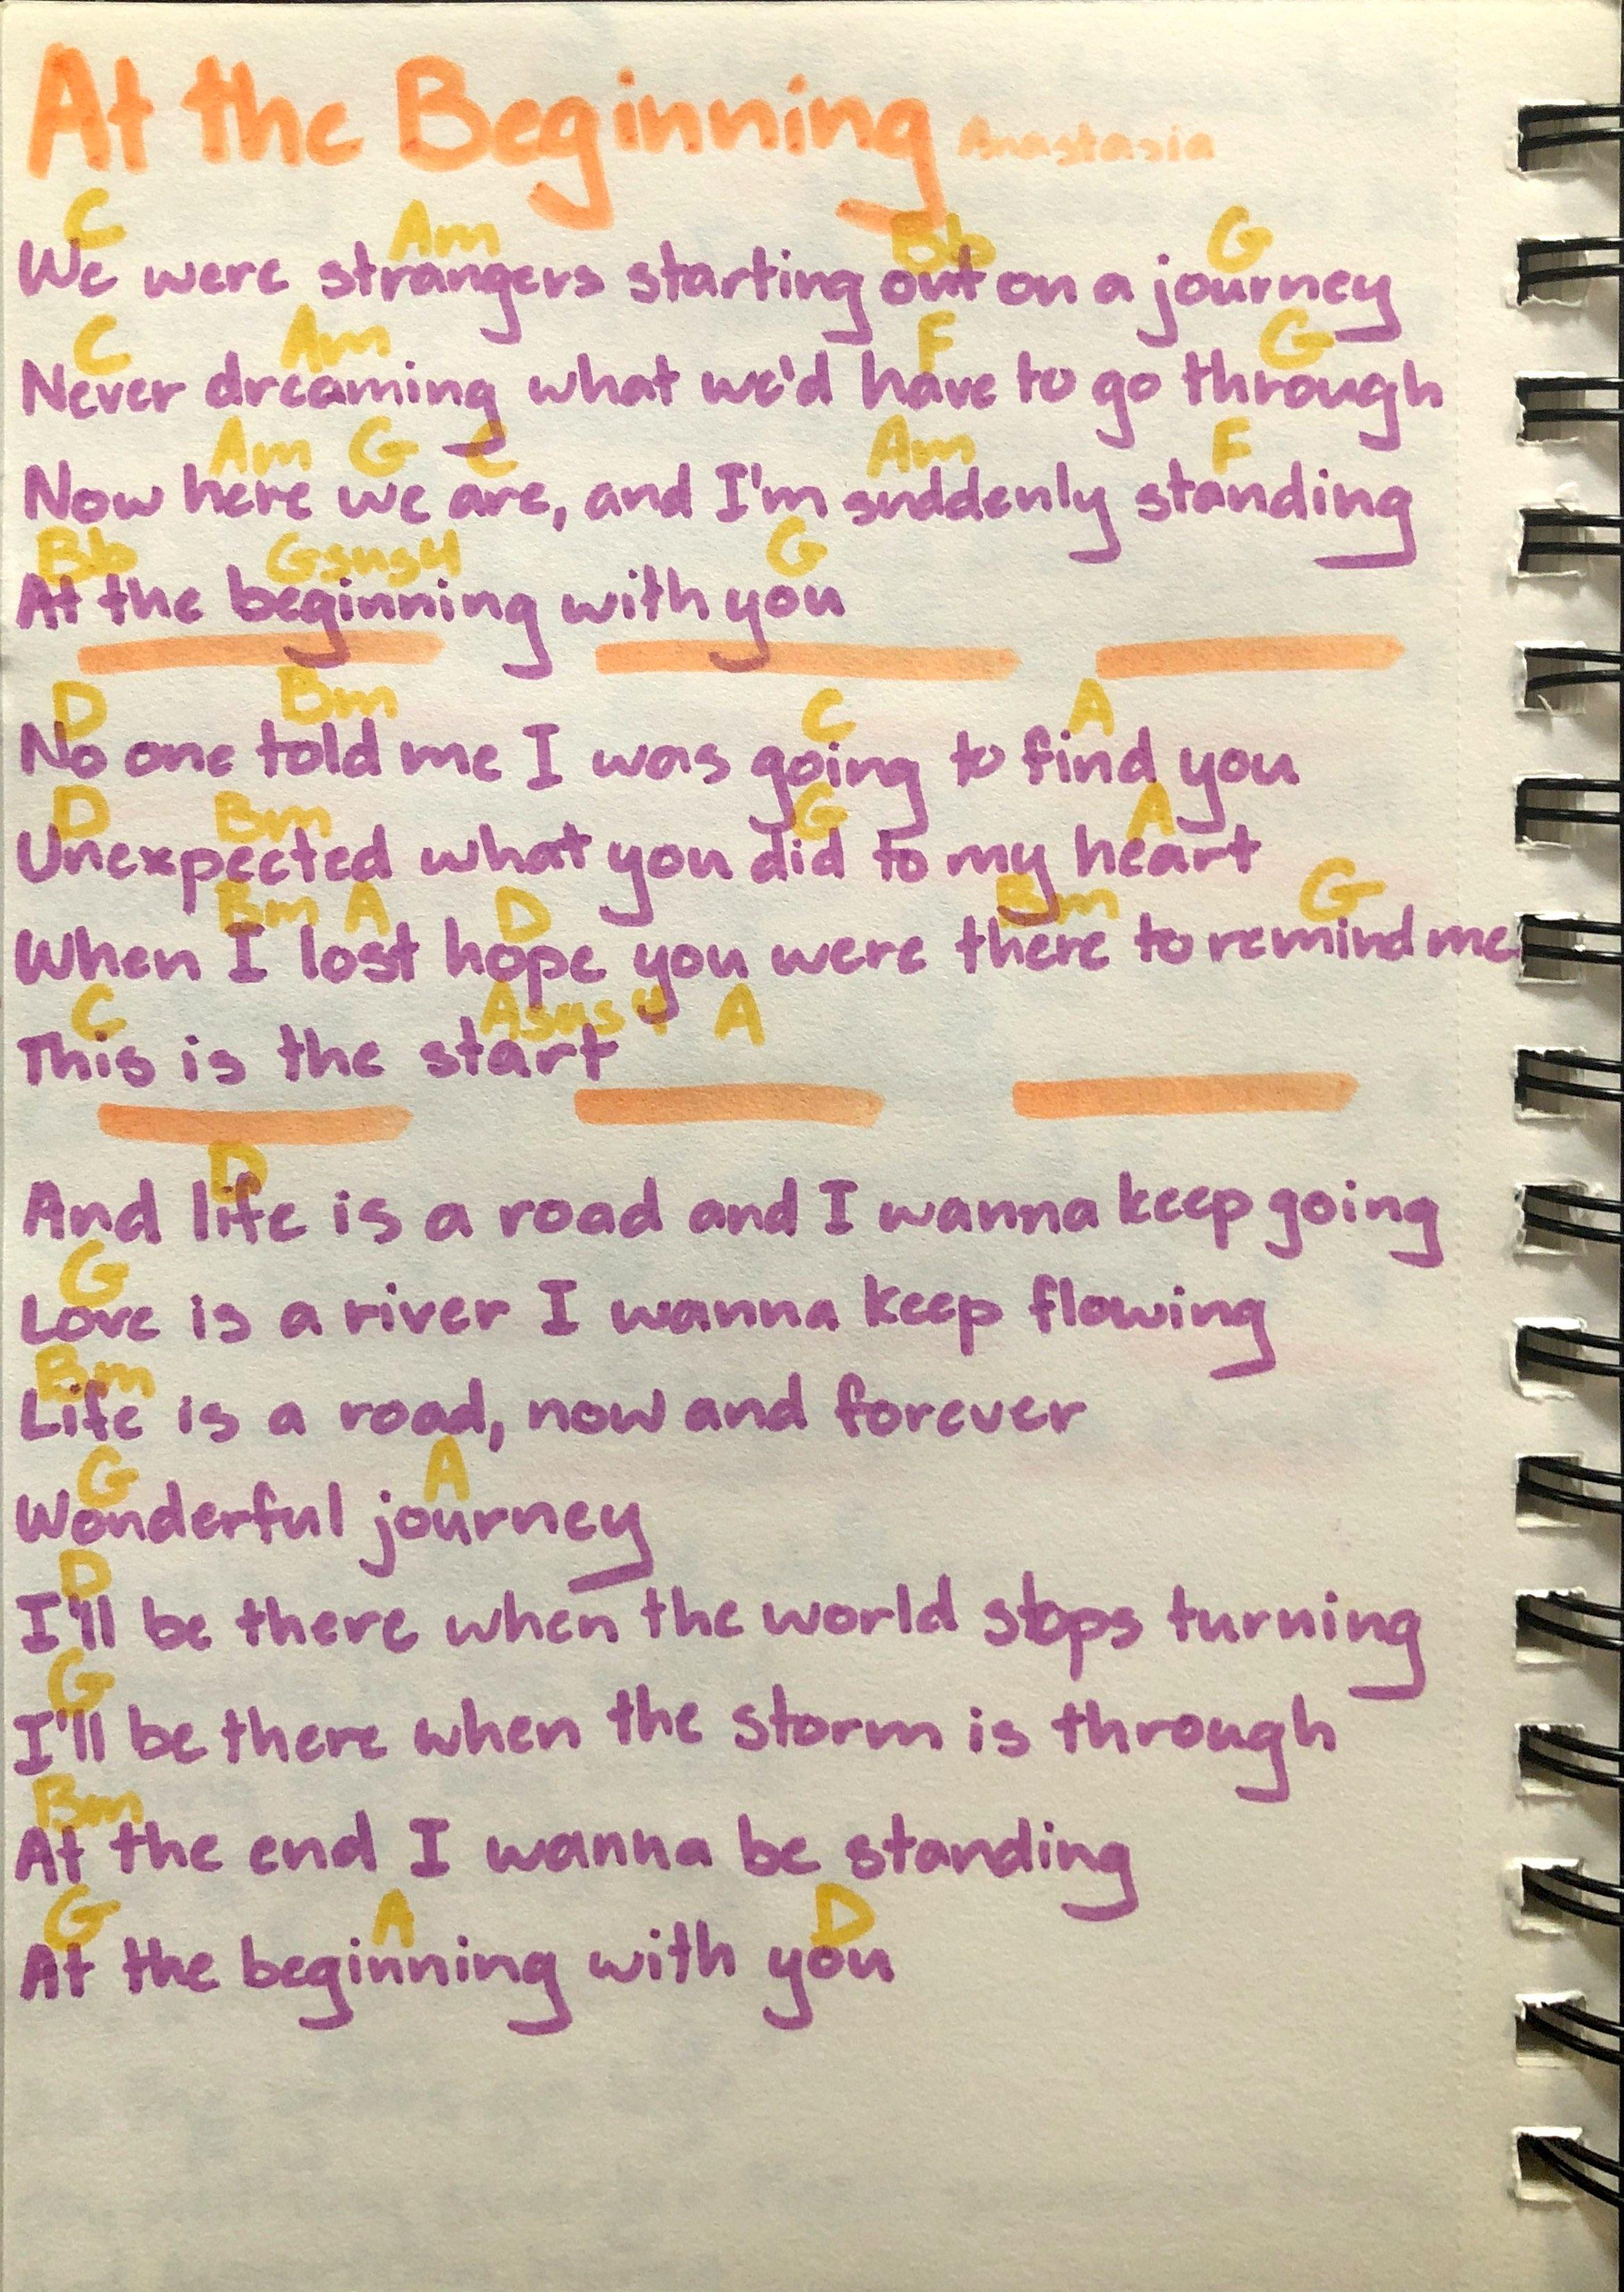 At the Beginning Anastasia
C Am Bb G
We were strangers starting out on a journey
C Am F G
Never dreaming what we'd have to go through
Am G C Am F
Now here we are, and I'm suddenly standing
Bb Gsus4 G
At the beginning with you
D Bm C A
No one told me I was going to find you
D Bm G A
Unexpected what you did to my heart
Bm A D Bm G
When I lost hope you were there to remind me
C Asus4 A
This is the start
D
And life is a road and I wanna keep going
G
Love is a river I wanna keep flowing
Bm
Life is a road, now and forever
G A
Wonderful journey
D
I'll be there when the world stops turning
G
I'll be there when the storm is through
Bm
At the end I wanna be standing
G A D
At the beginning with you